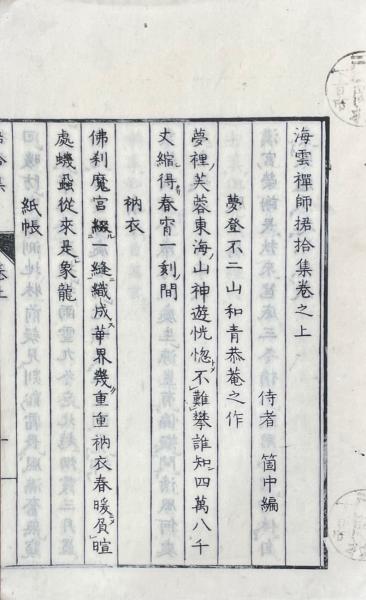 海雲禪師捃拾集卷之上
侍者 箇中編
夢登不二山和青恭菴之作
夢裡芙蓉東海山神遊恍惚不難攀誰知四萬八千
丈縮得春宵一刻間
衲衣
佛刹魔宮綴一縫織成華界幾重重衲衣春暖負暄
處蟣蝨從來是象龍
紙帳